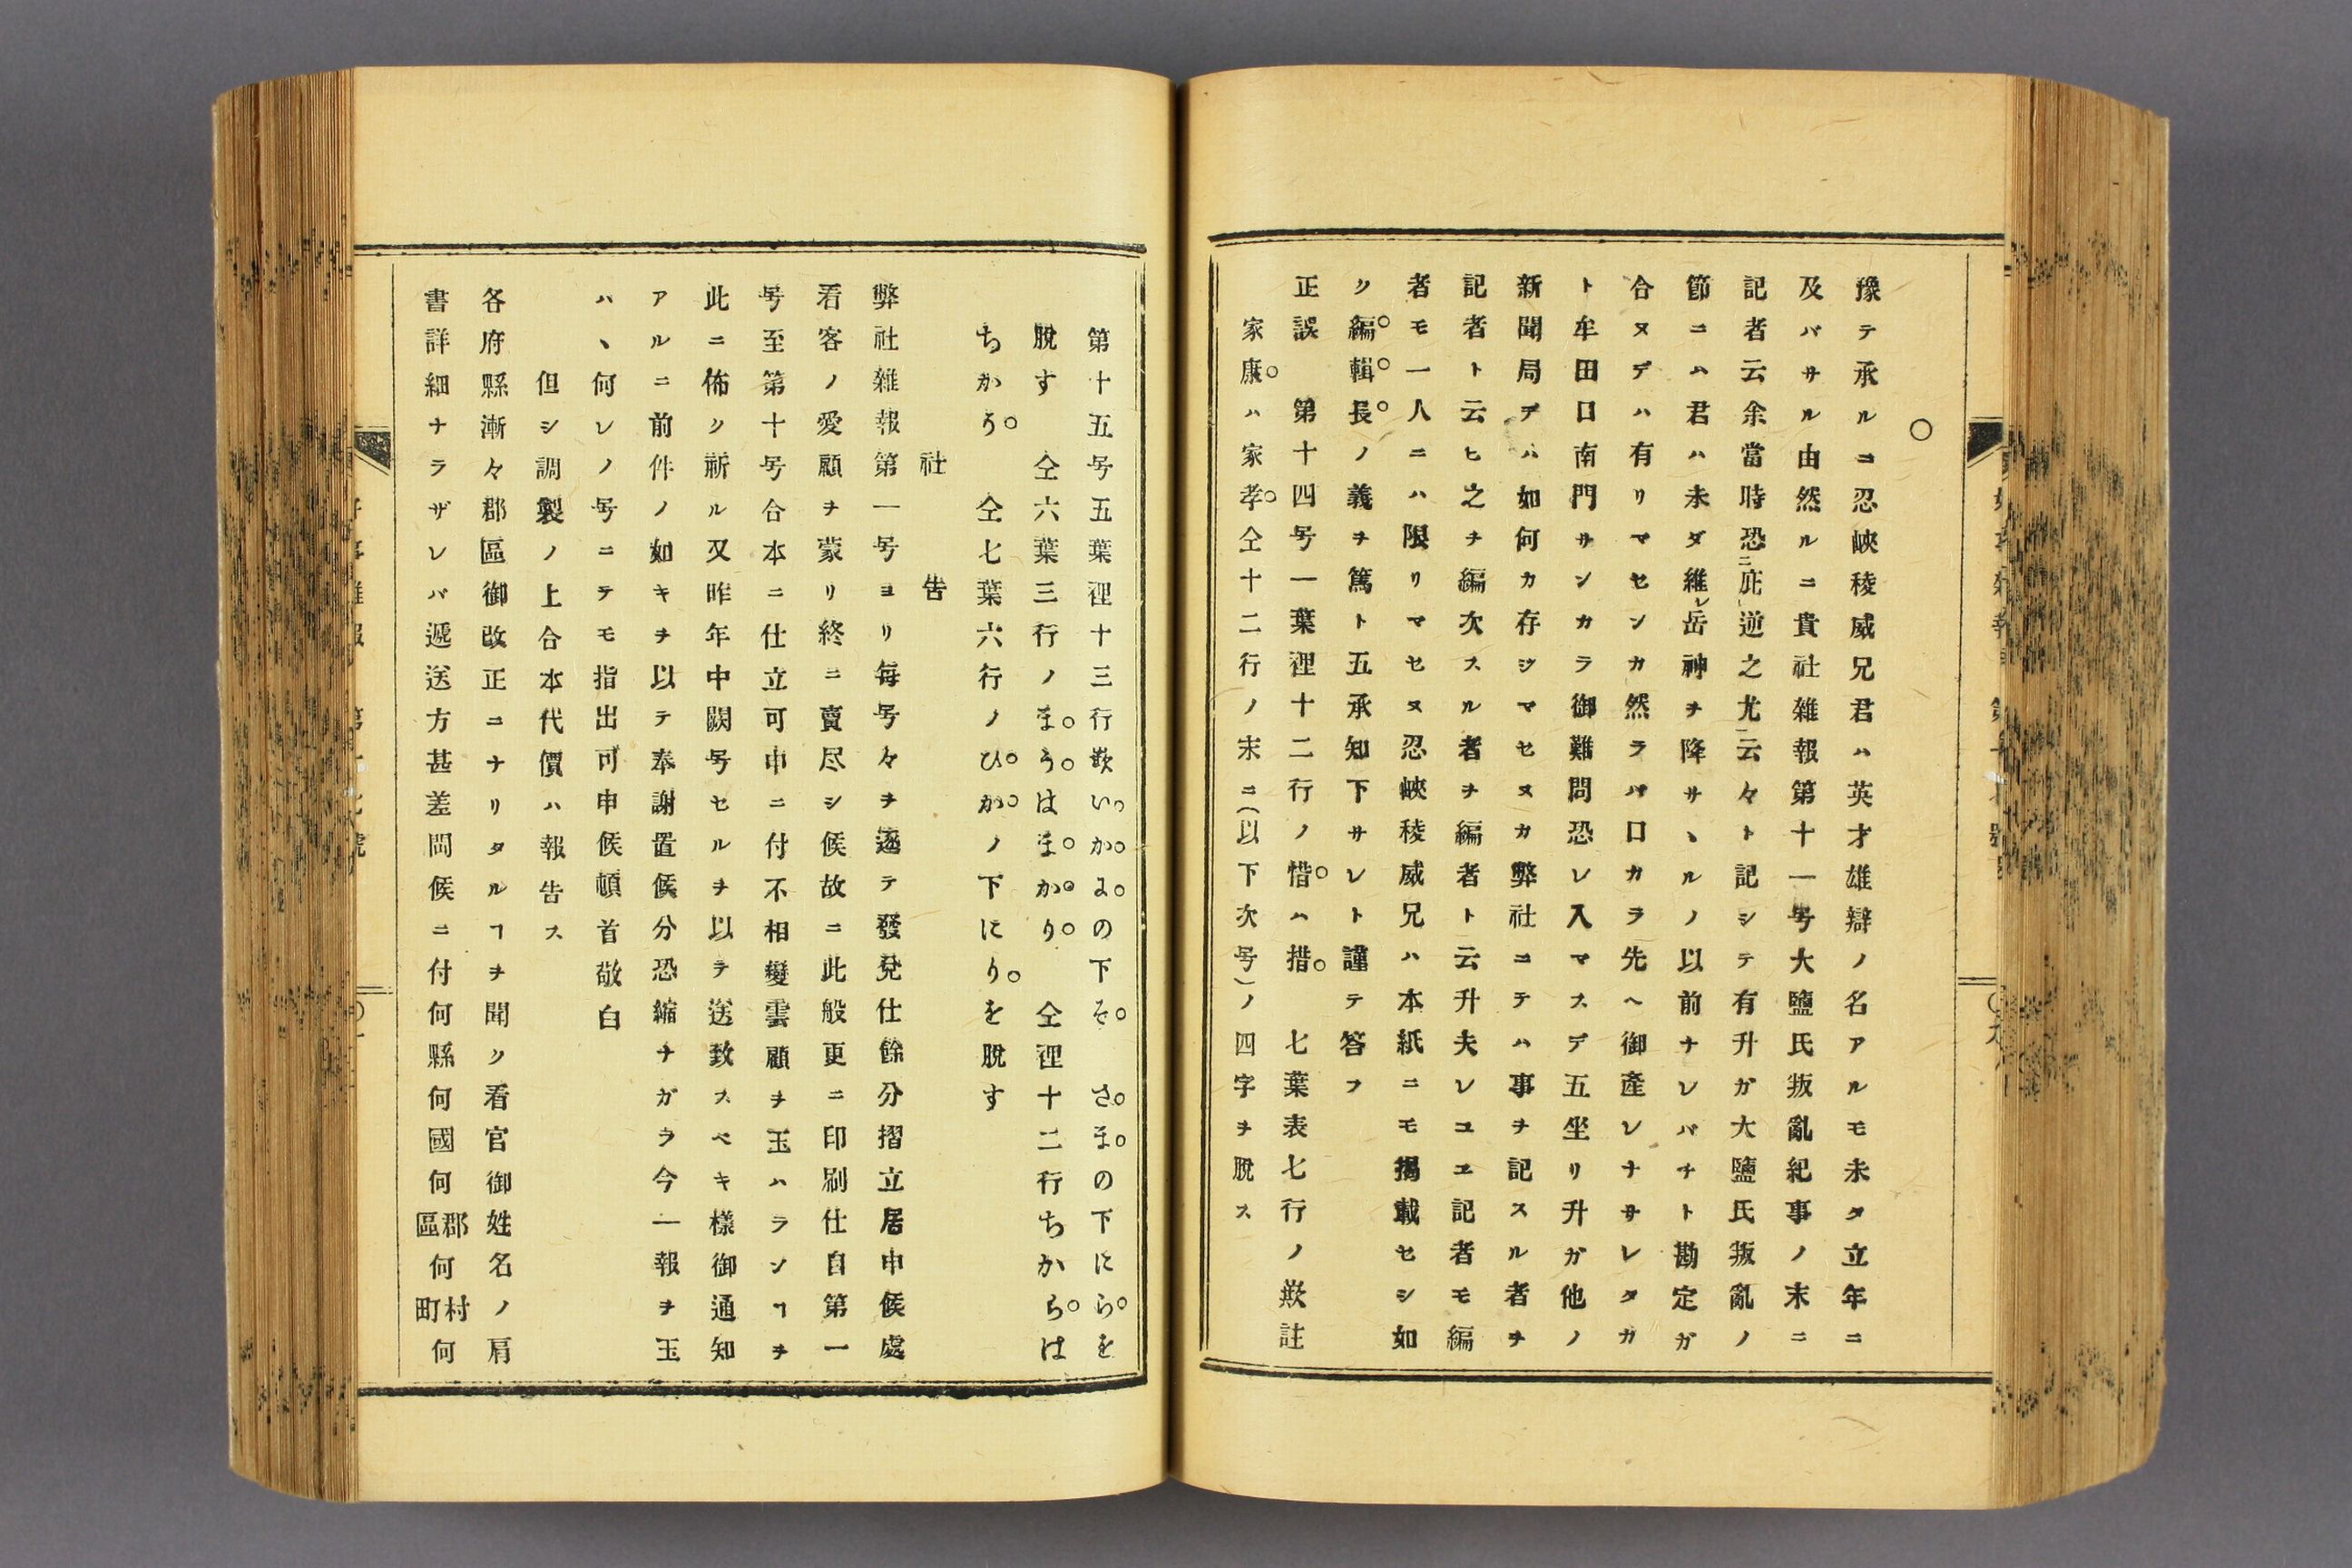 ○
豫テ承ルコ忍峽稜威兄君ハ英才雄辯ノ名アルモ未タ立年ニ
及バサル由然ルニ貴社雜報第十一号大鹽氏叛亂紀事ノ末ニ
記者云余當時恐ニ庇逆之尤云々ト記シテ有升ガ大鹽氏叛亂ノ
節ニハ君ハ未ダ維レ岳神ヲ降サヽルノ以前ナレバチト勘定ガ
合ヌデハ有リマセンカ然ラバ口カラ先ヘ御產レナサレタカ
ト牟田口南門サンカラ御難問恐レ入マスデ五坐リ升ガ他ノ
新聞局デハ如何カ存ジマセヌカ弊社ニテハ事ヲ記スル者ヲ
記者ト云ヒ之ヲ編次スル者ヲ編者ト云升夫レユヱ記者モ編
者モ一人ニハ限リマセヌ忍峽稜威兄ハ本紙ニモ揭載セシ如
ク編輯長ノ義ヲ篤ト五承知下サレト謹テ答フ
正誤 第十四号一葉裡十二行ノ惜ハ措 七葉表七行ノ欺註
家康ハ家孝仝十二行ノ末ニ(以下次号)ノ四字ヲ脫ス
第十五号五葉裡十三行歟いかよの下そ さまの下にらを
脫す 仝六葉三行ノまうはまかり 仝裡十二行ちからは
ちかう 仝七葉六行ノひかノ下にりを脫す
社 告
弊社雜報第一号ヨリ每号々ヲ逐テ發兌仕餘分摺立居申候處
看客ノ愛顧ヲ蒙リ終ニ賣尽シ候故ニ此般更ニ印刷仕自第一
号至第十号合本ニ仕立可申ニ付不相變雲顧ヲ玉ハランヿヲ
此ニ佈ク新ル又昨年中闕号セルヲ以テ送致スベキ樣御通知
アルニ前件ノ如キヲ以テ奉謝置候分恐縮ナガラ今一報ヲ玉
ハヽ何レノ号ニテモ指出可申候頓首敬白
但シ調製ノ上合本代價ハ報告ス
各府縣漸々郡區御改正ニナリタルヿヲ聞ク看官御姓名ノ肩
書詳細ナラザレバ遞送方甚差閊候ニ付何縣何國何郡區何村町何